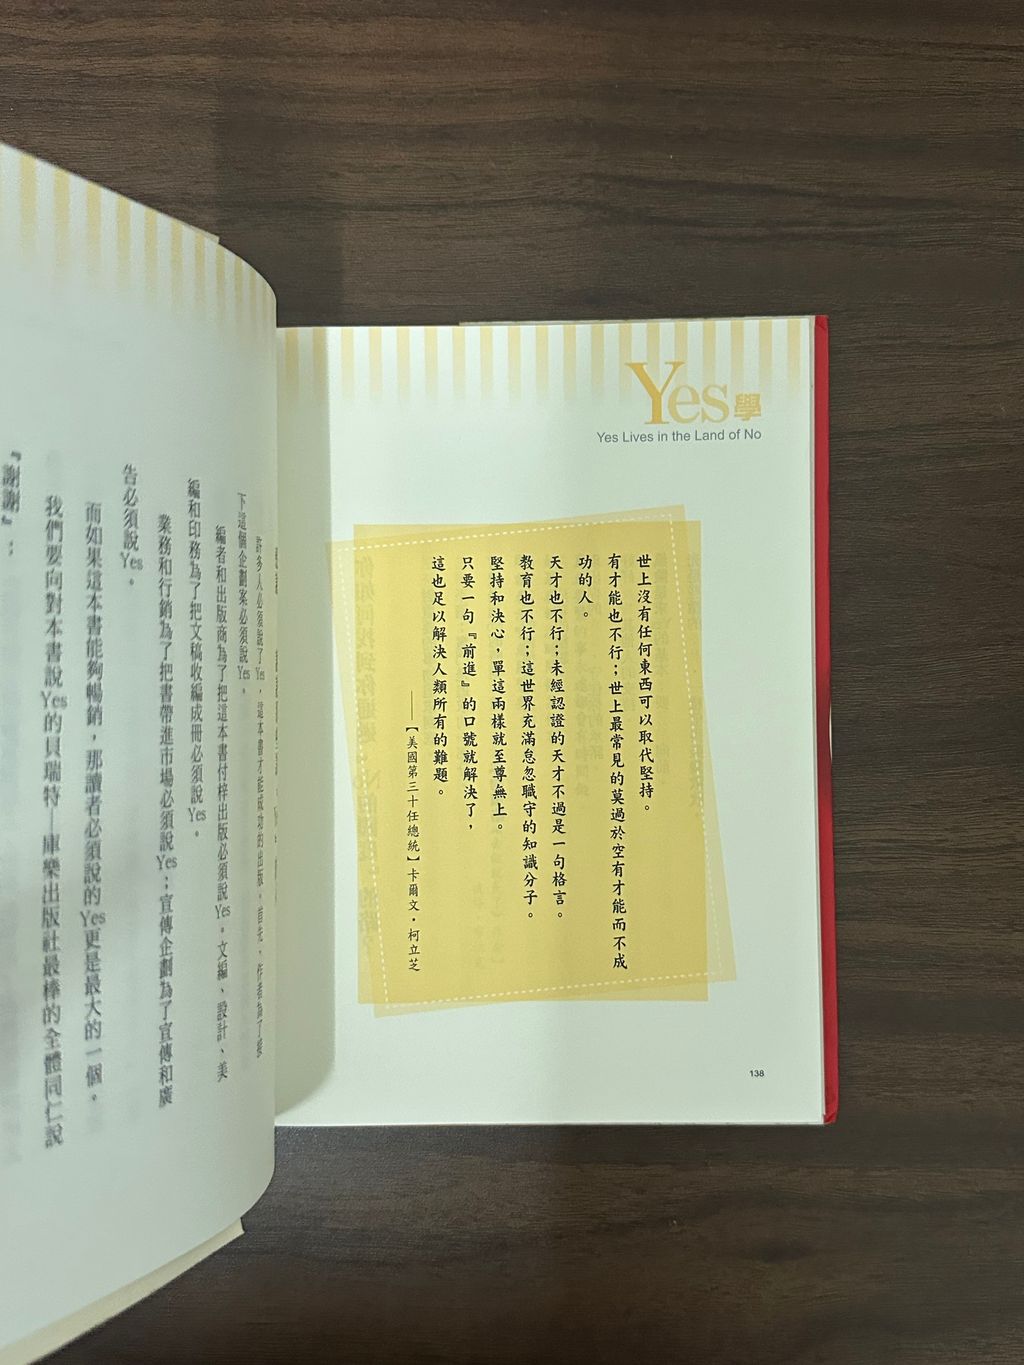 Yes學
Yes Lives in the Land of No
世上沒有任何東西可以取代堅持。
有才能也不行；世上最常見的莫過於空有才能而不成
功的人。
天才也不行；未經認證的天才不過是一句格言。
教育也不行；這世界充滿怠忽職守的知識分子。
堅持和決心，單這兩樣就至尊無上。
只要一句『前進』的口號就解決了，
這也足以解決人類所有的難題。
——【美國第三十任總統】卡爾文・柯立芝
138
許多人必須說了Yes，這本書才能成功的出版。首先，作者為了接
下這個企劃案必須說Yes。
編者和出版商為了把這本書付梓出版必須說Yes。文編、設計、美
編和印務為了把文稿收編成冊必須說Yes。
業務和行銷為了把書帶進市場必須說Yes；宣傳企劃為了宣傳和廣
告必須說Yes。
而如果這本書能夠暢銷，那讀者必須說的Yes更是最大的一個。
我們要向對本書說Yes的貝瑞特—庫樂出版社最棒的全體同仁說
『謝謝』：